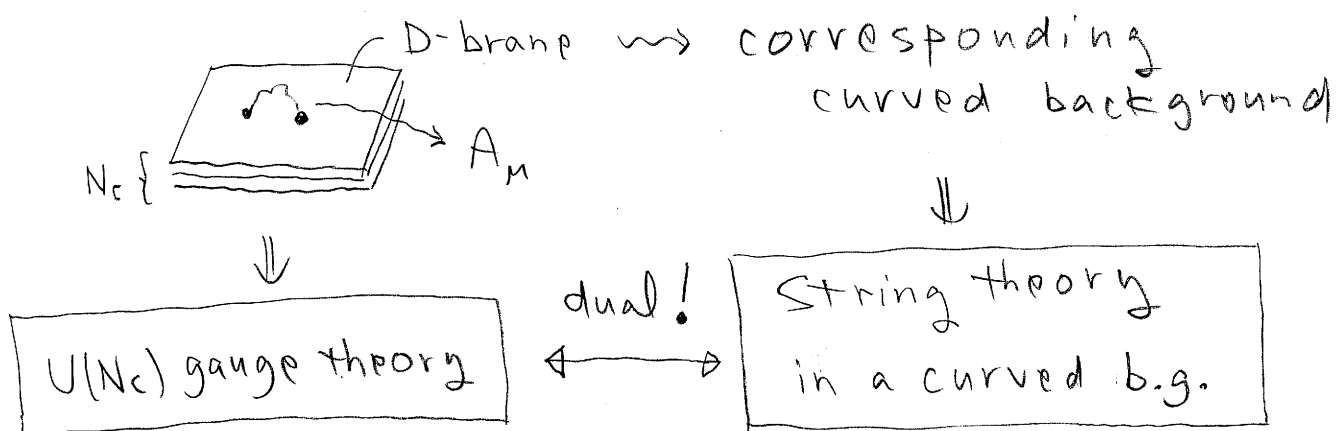 D-brane ⇝ corresponding
curved background
A_μ
N_c {
⇓ ⇓
dual!
U(N_c) gauge theory ↔ String theory
in a curved b.g.